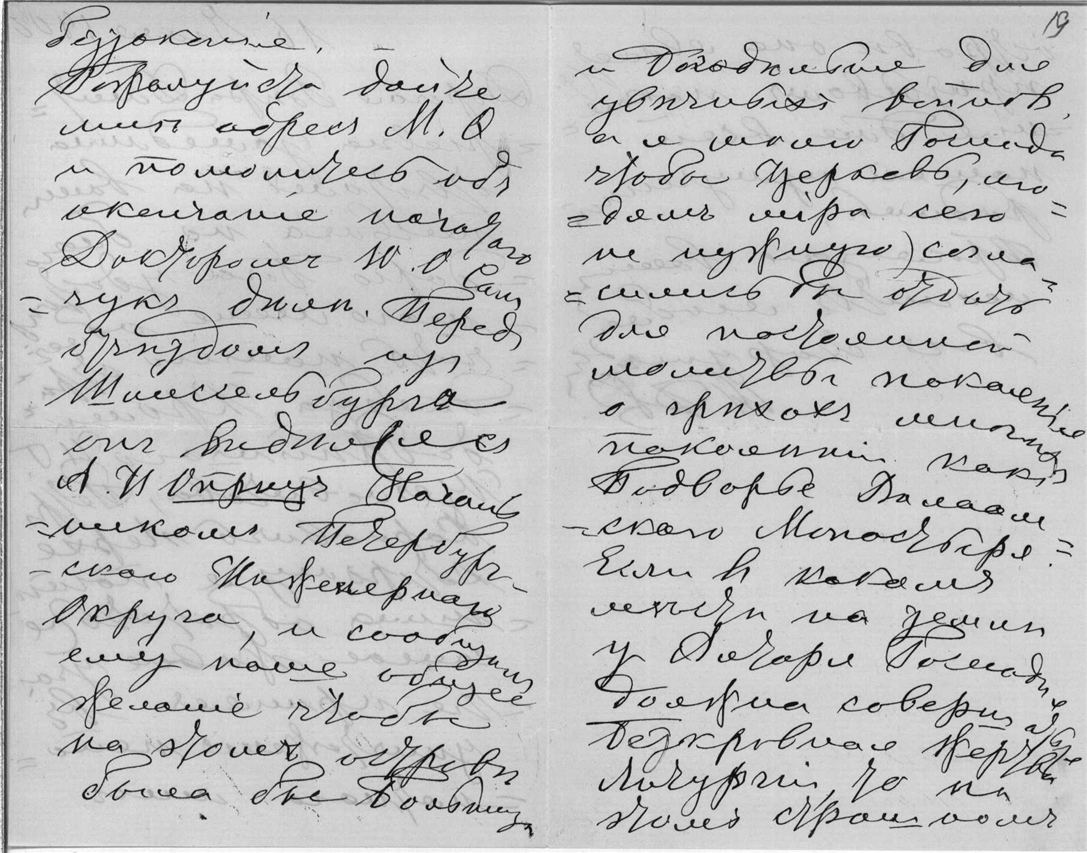 Пожалуйста дайте
мнѣ адресъ М. О
и помолитесь объ
окончаніе начатаго
Докторомъ Ю. О Сан
=чукъ дѣла. Передъ
отъѣздомъ изъ
Шлиссельбурга
онъ видѣлся съ
А. И Началь
=никомъ Петербург-
=скаго Инженернаго
Округа, и сообщилъ
ему наше общее
желаніе чтобы
на этомъ островѣ
была бы больница
19
и Богадельня для
увѣчныхъ воиновъ,
а я молю Господа
чтобы Церковь, (лю
=дямъ міра сего =
не нужную) согла=
=сились бы отдать
для постоянной
молитвы покаянія
о грѣхахъ многихъ
поколѣній какъ
Подворье Валаам
=скаго Монастыря =
Если въ какомъ
мѣстѣ на земли
у Алтаря Господня
должна совершаться
безкровная жертва
Литургіи, то на
этомъ страшномъ